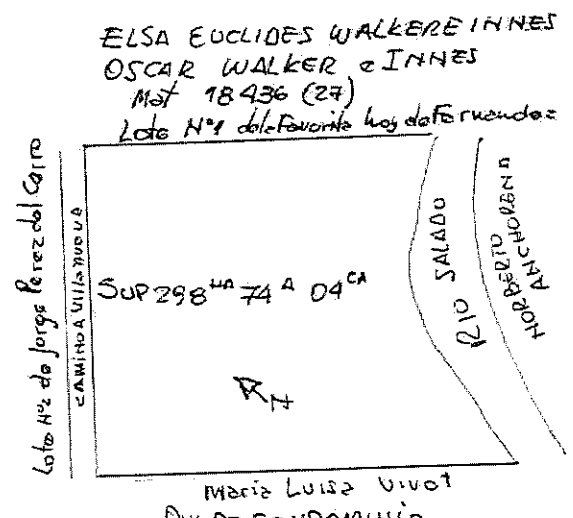 ELSA EUCLIDES WALKER E INNES
OSCAR WALKER e INNES
Mat 18436 (27)
Lote Nº1 de la Favorita hoy de Fernandez
Lote Nº2 de Jorge Perez del Cerro
CAMINO A VILLANUEVA
SUP 298 HA 74 A 04 CA
N
RIO SALADO
NORBERTO
ANCHORENA
Maria Luisa Vivot